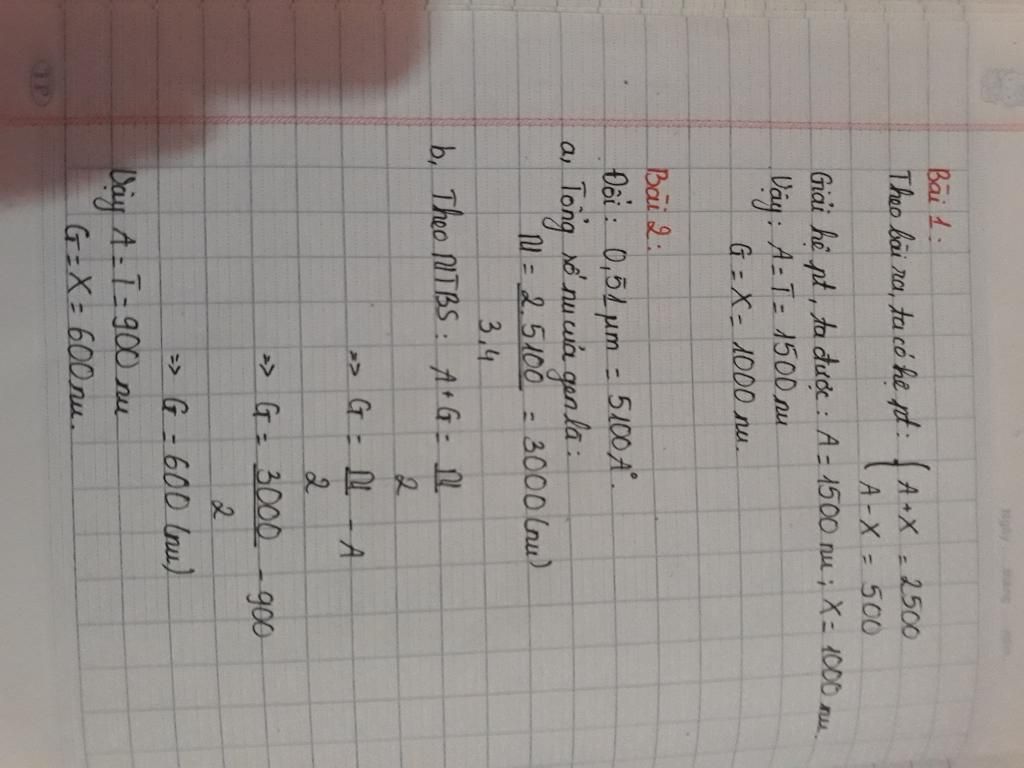 Bài 1:
Theo bài ra, ta có hệ pt: { A + X = 2500
A - X = 500
Giải hệ pt, ta được: A = 1500 nu; X = 1000 nu
Vậy: A = T = 1500 nu
G = X = 1000 nu.
Bài 2:
Đổi: 0,51 µm = 5100 A°.
a, Tổng số nu của gen là:
N = 2.5100 / 3,4 = 3000 (nu)
b, Theo NTBS: A + G = N / 2
=> G = N / 2 - A
=> G = 3000 / 2 - 900
=> G = 600 (nu)
Vậy A = T = 900 nu
G = X = 600 nu.
TP
Ngày